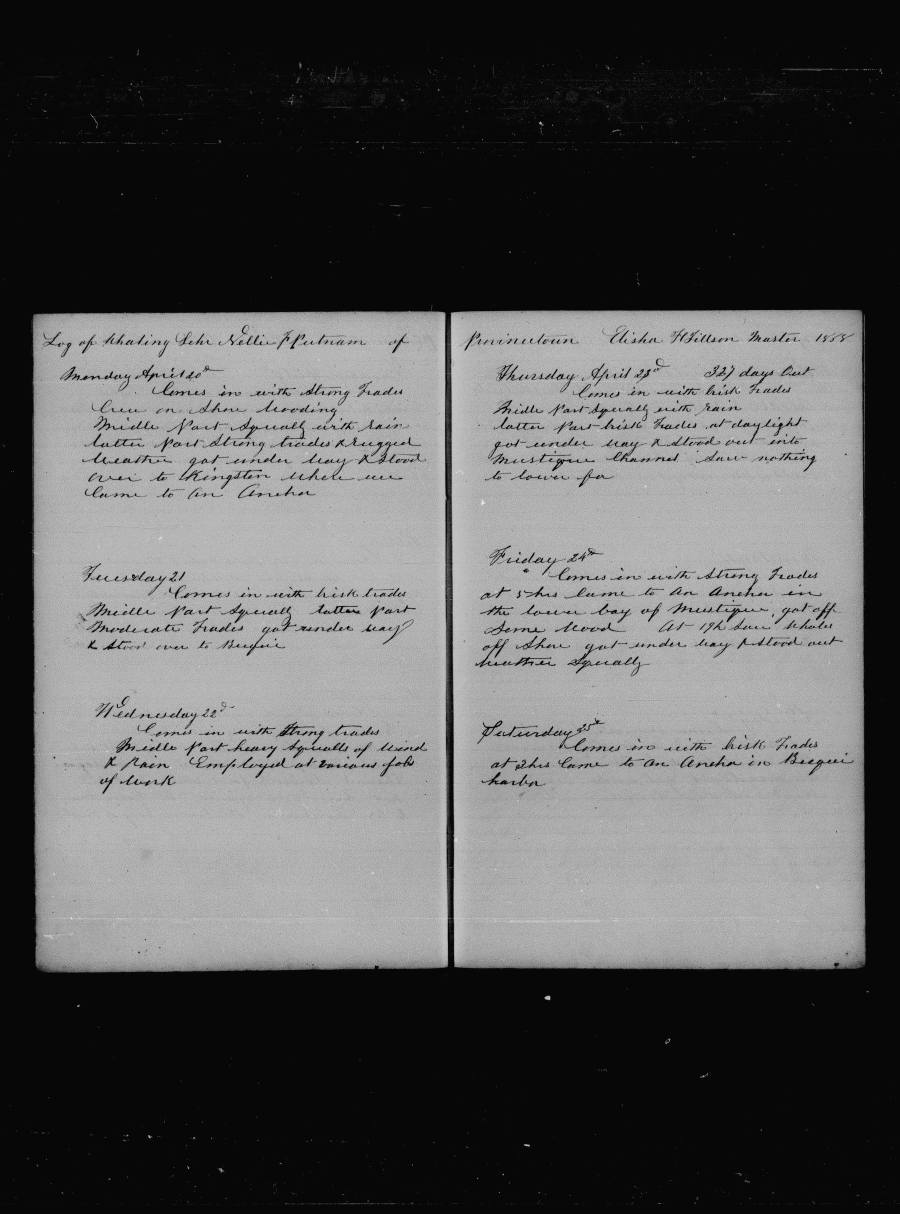 Log of Whaling Schr Nellie F Putnam of
Monday April 20th
Comes in with Strong Trades
Crew on Shore Wooding
Middle Part Squally with rain
latter Part Strong trades & rugged
Weather got under Way & Stood
over to Kingston Where we
Came to An Anchor
Tuesday 21
Comes in with brisk trades
Middle Part Squally latter Part
Moderate Trades got under way
& Stood over to Bequie
Wednesday 22d
Comes in with Strong trades
Middle Part heavy Squalls of Wind
& Rain Employed at various jobs
of Work
Provincetown Elisha H Tillson Master 1868
Thursday April 23d 327 days Out
Comes in with brisk Trades
Middle Part Squally with rain
latter Part brisk Trades at daylight
got under way & Stood out into
Mustique Channel Saw nothing
to lower for
Friday 24th
Comes in with Strong Trades
at 5 hrs Came to An Anchor in
the lower bay of Mustique, got off
Some Wood At 19h Saw Whales
off Shore got under way & Stood out
weather Squally
Saturday 25th
Comes in with brisk Trades
at 2hrs Came to An Anchor in Bequie
harbor